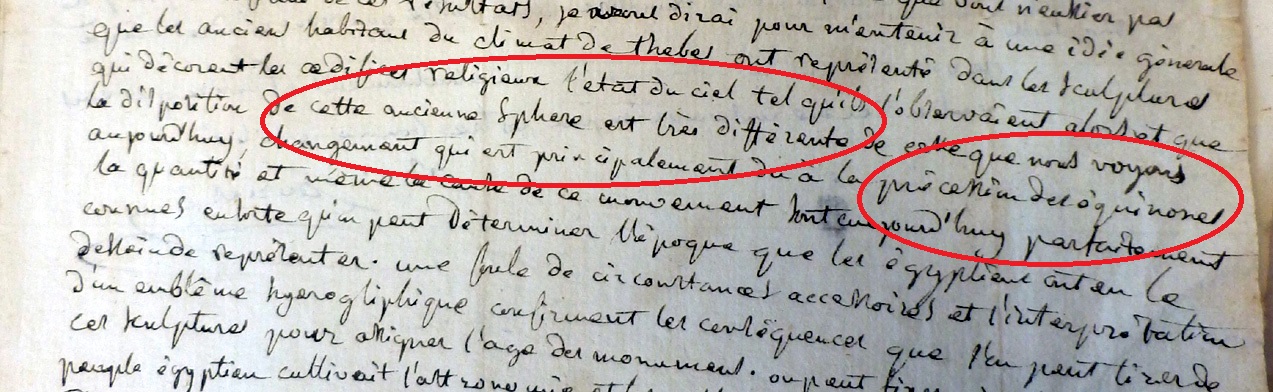 de ces résultats, je vous dirai pour m'entenir à une idée generale
que les anciens habitans du climat de thebes ont représenté dans les sculptures
qui décorent les œdifices religieux l'état du ciel tel qu'ils l'observaient alors et que
la disposition de cette ancienne Sphere est très différente de celle que nous voyons
aujourd'huy. changement qui est principalement dû à la précession des équinoxes
la quantité et même la cause de ce mouvement sont aujourd'huy parfaitement
connues ensorte qu'on peut déterminer l'époque que les égyptiens ont eu le
dessein de représenter. une foule de circonstances accessoires et l'interprétation
d'un emblême hyerogliphique confirment les conséquences que l'on peut tirer de
ces sculptures pour assigner l'age des monumens. on peut
peuple égyptien cultivait l'astronomie et